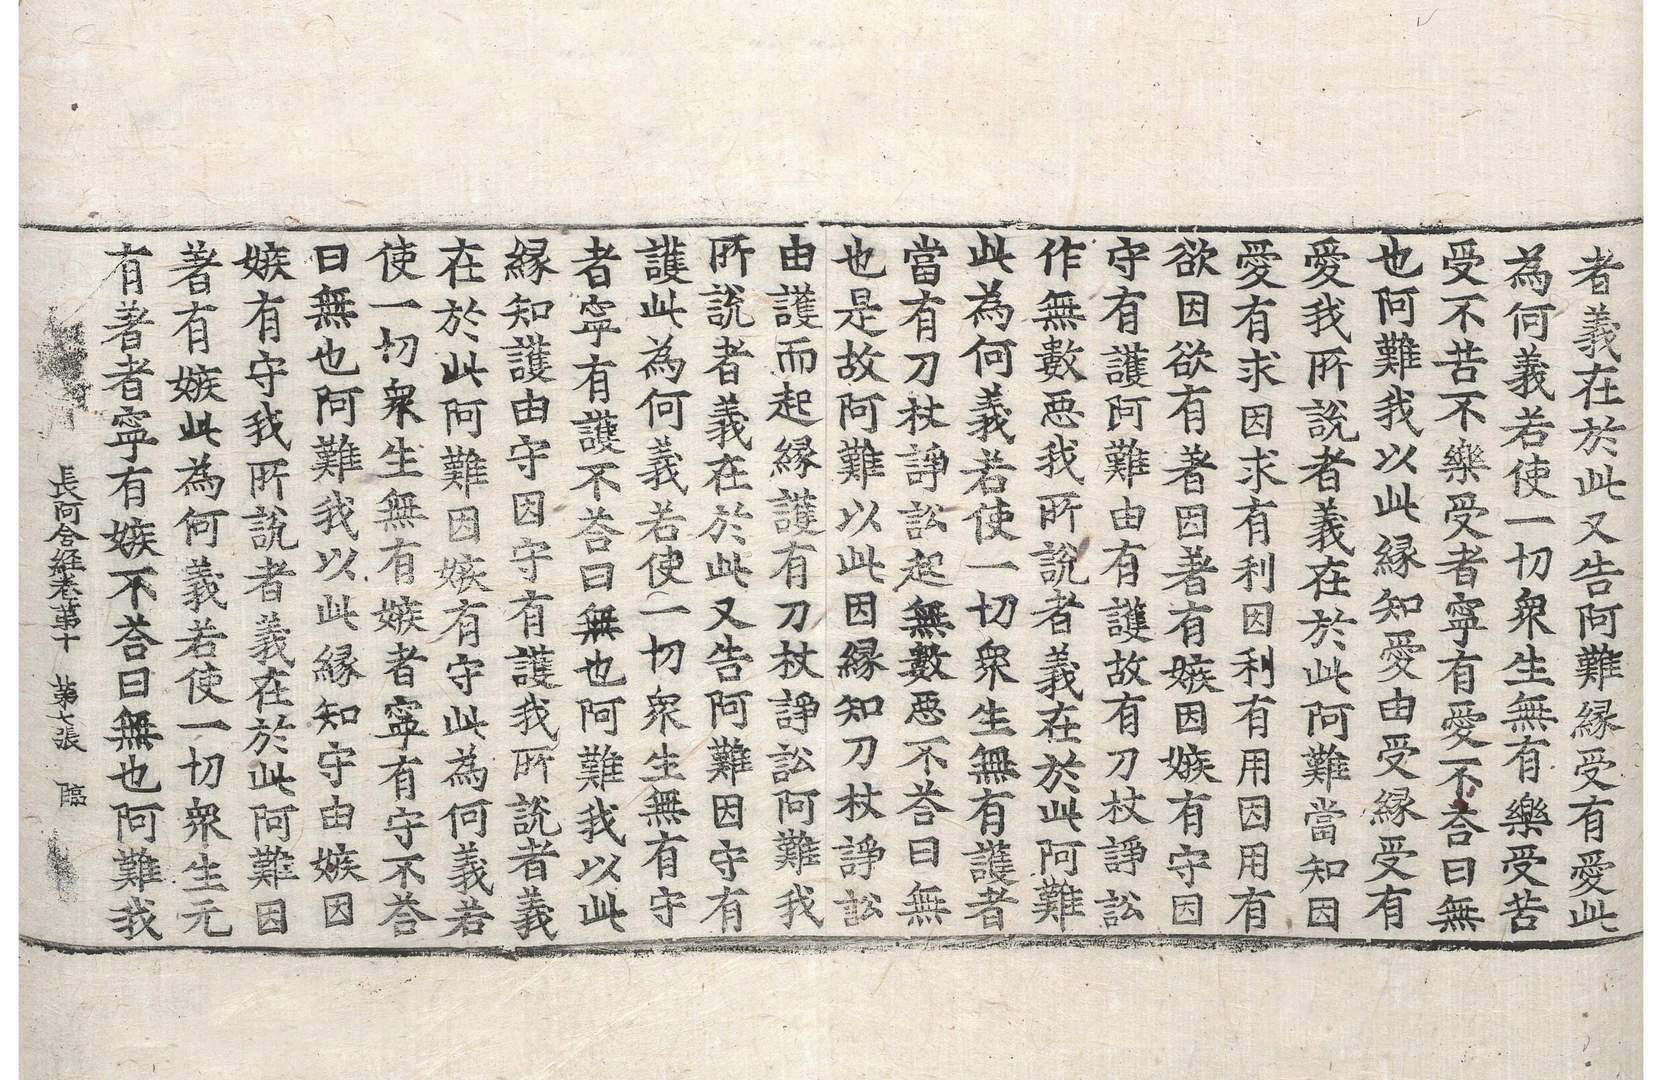 者義在於此又告阿難縁受有愛此
為何義若使一切衆生無有樂受苦
受不苦不樂受者寧有愛不荅曰無
也阿難我以此縁知愛由受縁受有
愛我所說者義在於此阿難當知因
愛有求因求有利因利有用因用有
欲因欲有著因著有嫉因嫉有守因
守有護阿難由有護故有刀杖諍訟
作無數惡我所說者義在於此阿難
此為何義若使一切衆生無有護者
當有刀杖諍訟起無數惡不荅曰無
也是故阿難以此因縁知刀杖諍訟
由護而起縁護有刀杖諍訟阿難我
所說者義在於此又告阿難因守有
護此為何義若使一切衆生無有守
者寧有護不荅曰無也阿難我以此
縁知護由守因守有護我所說者義
在於此阿難因嫉有守此為何義若
使一切衆生無有嫉者寧有守不荅
曰無也阿難我以此縁知守由嫉因
嫉有守我所說者義在於此阿難因
著有嫉此為何義若使一切衆生无
有著者寧有嫉不荅曰無也阿難我
長阿含経卷苐十 苐七張 臨